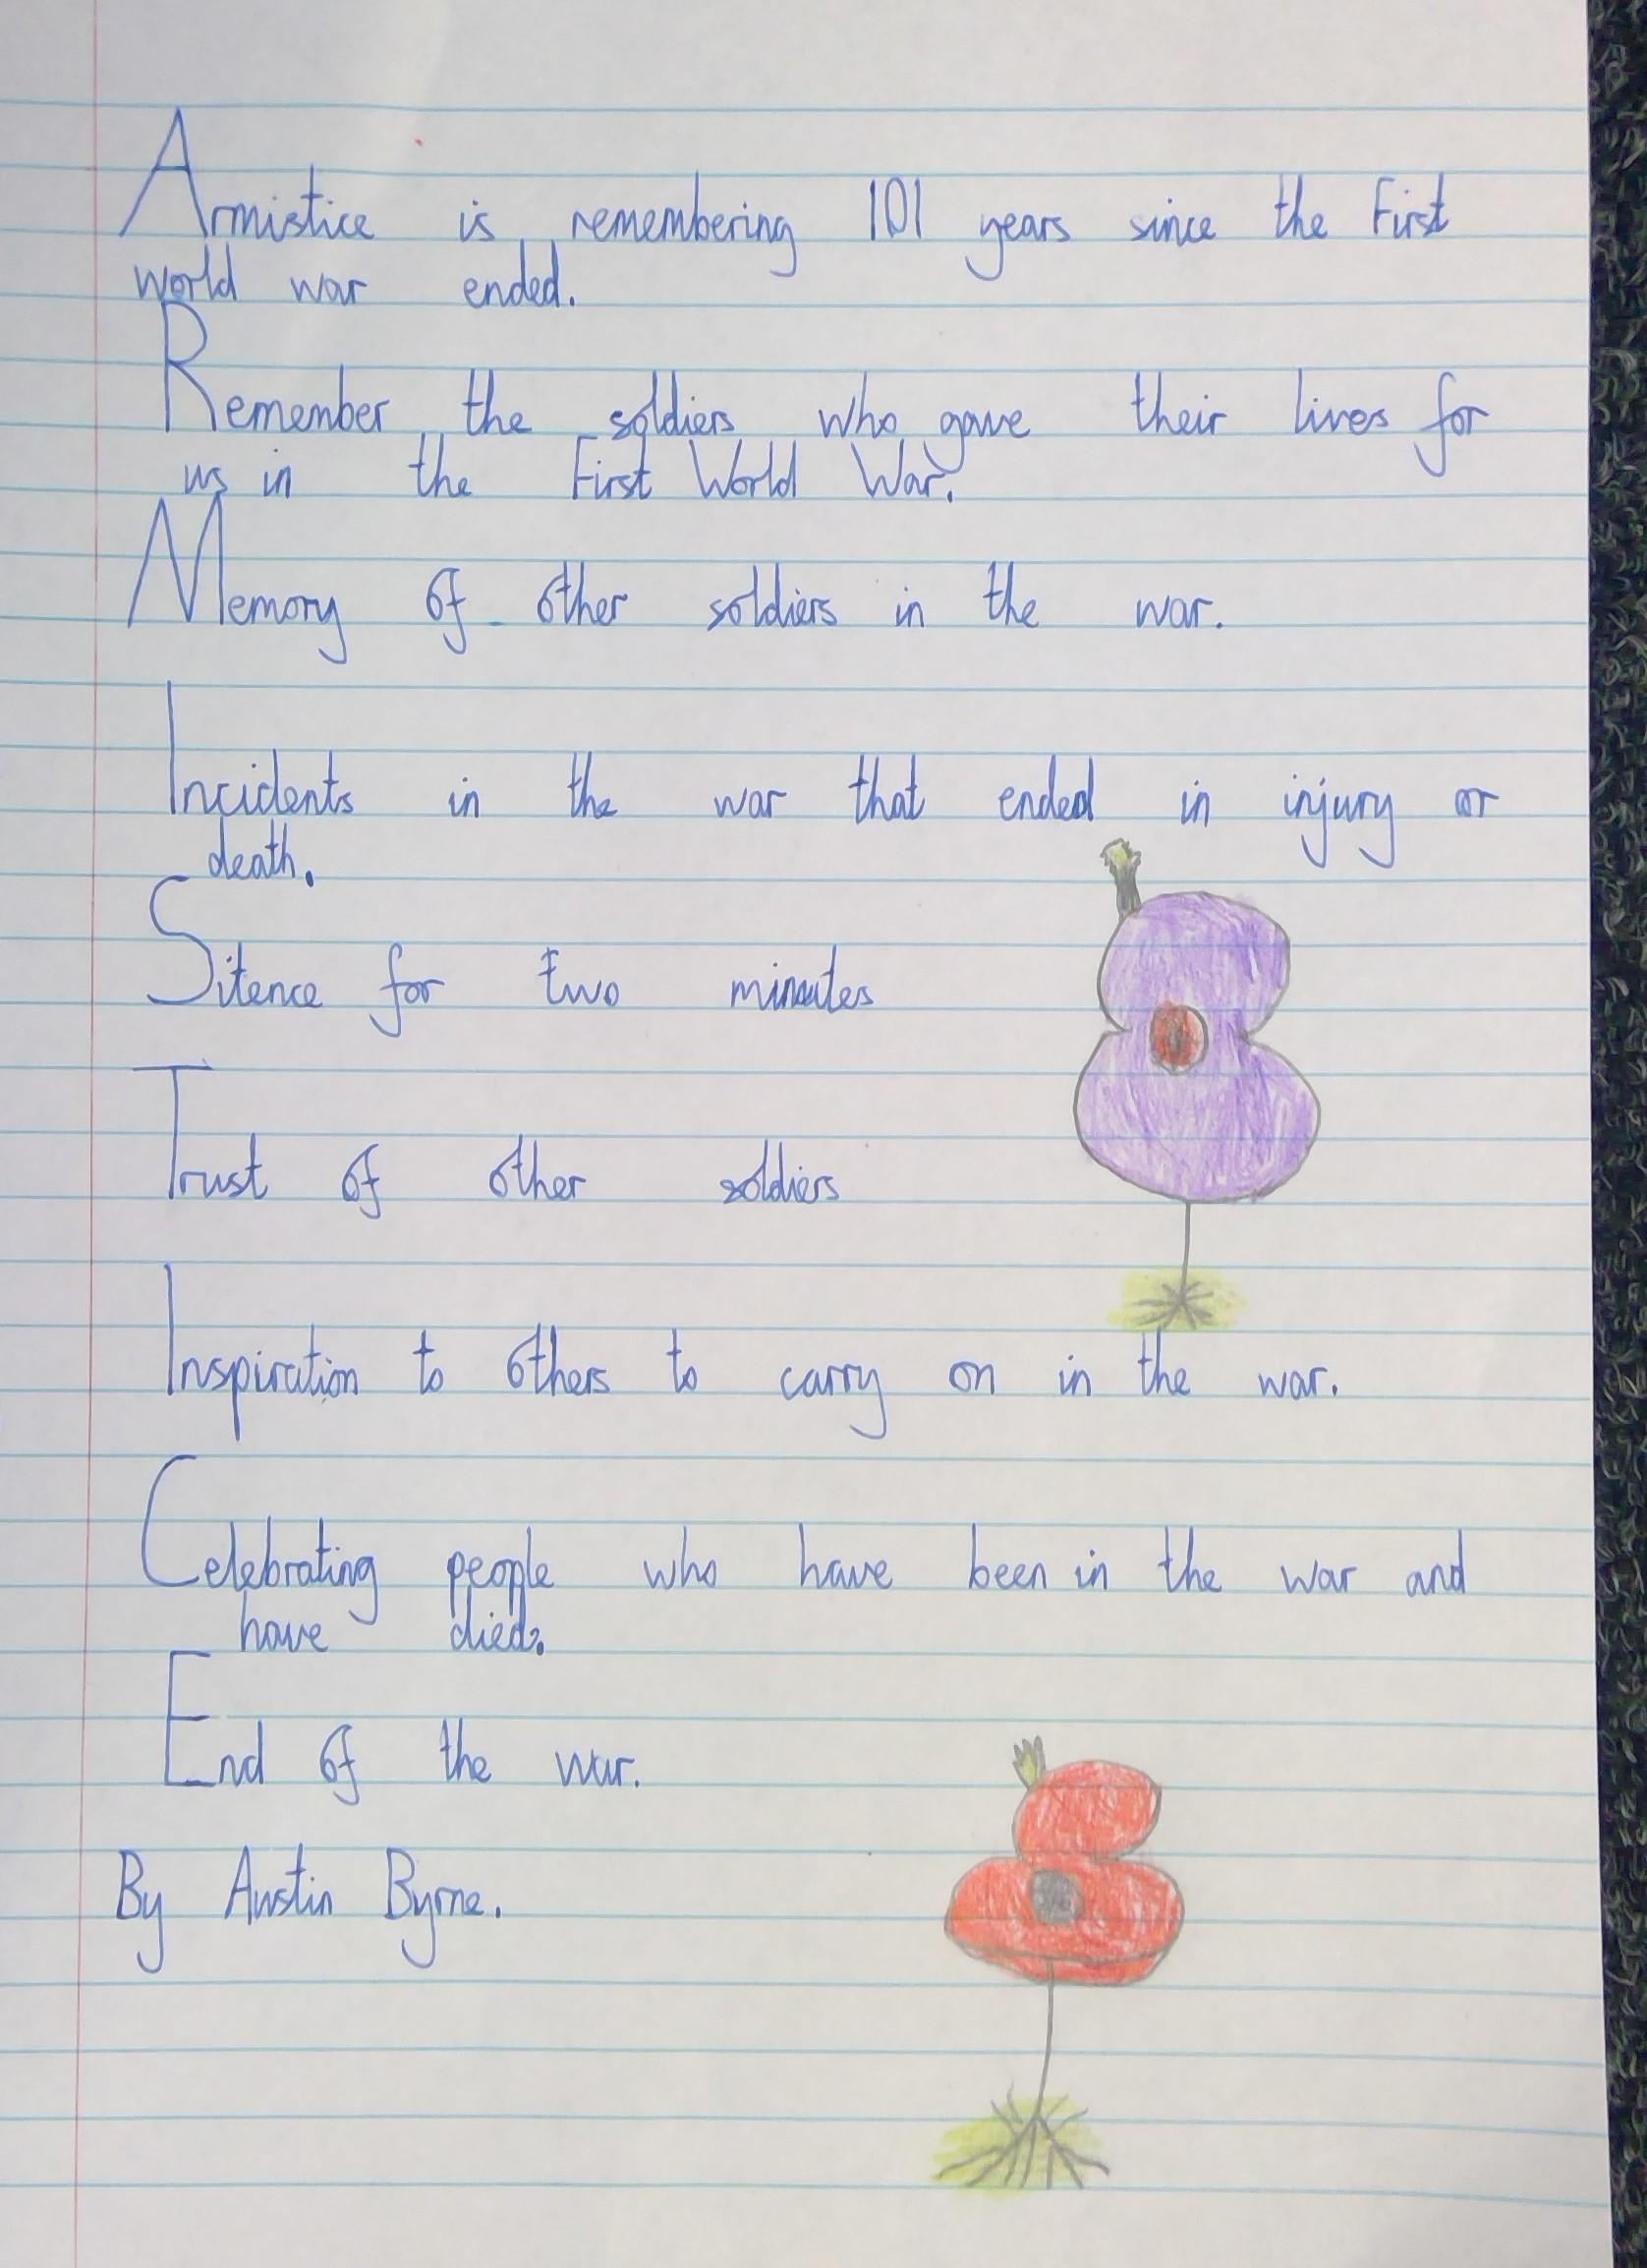 Armistice is remembering 101 years since the First
world war ended.
Remember the soldiers who gave their lives for
us in the First World War.
Memory of other soldiers in the war.
Incidents in the war that ended in injury or
death.
Sitence for two minutes
Trust of other soldiers
Inspiration to others to carry on in the war.
Celebrating people who have been in the war and
have died.
End of the war.
By Austin Byrne.